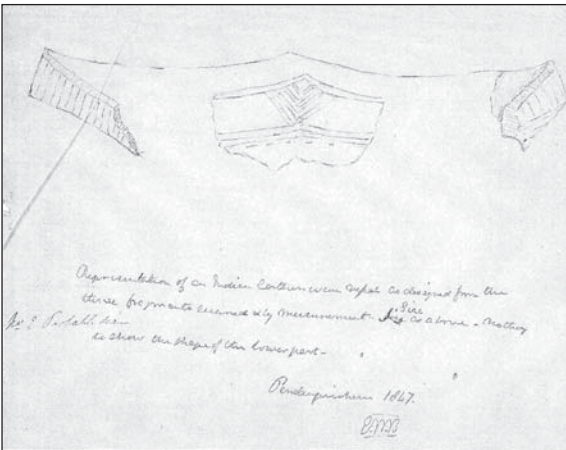 Representation of an Indian Earthenware vessel as designed from the
three fragments secured & by measurement. Size as above - Nothing
to show the shape of the lower part -
1847.